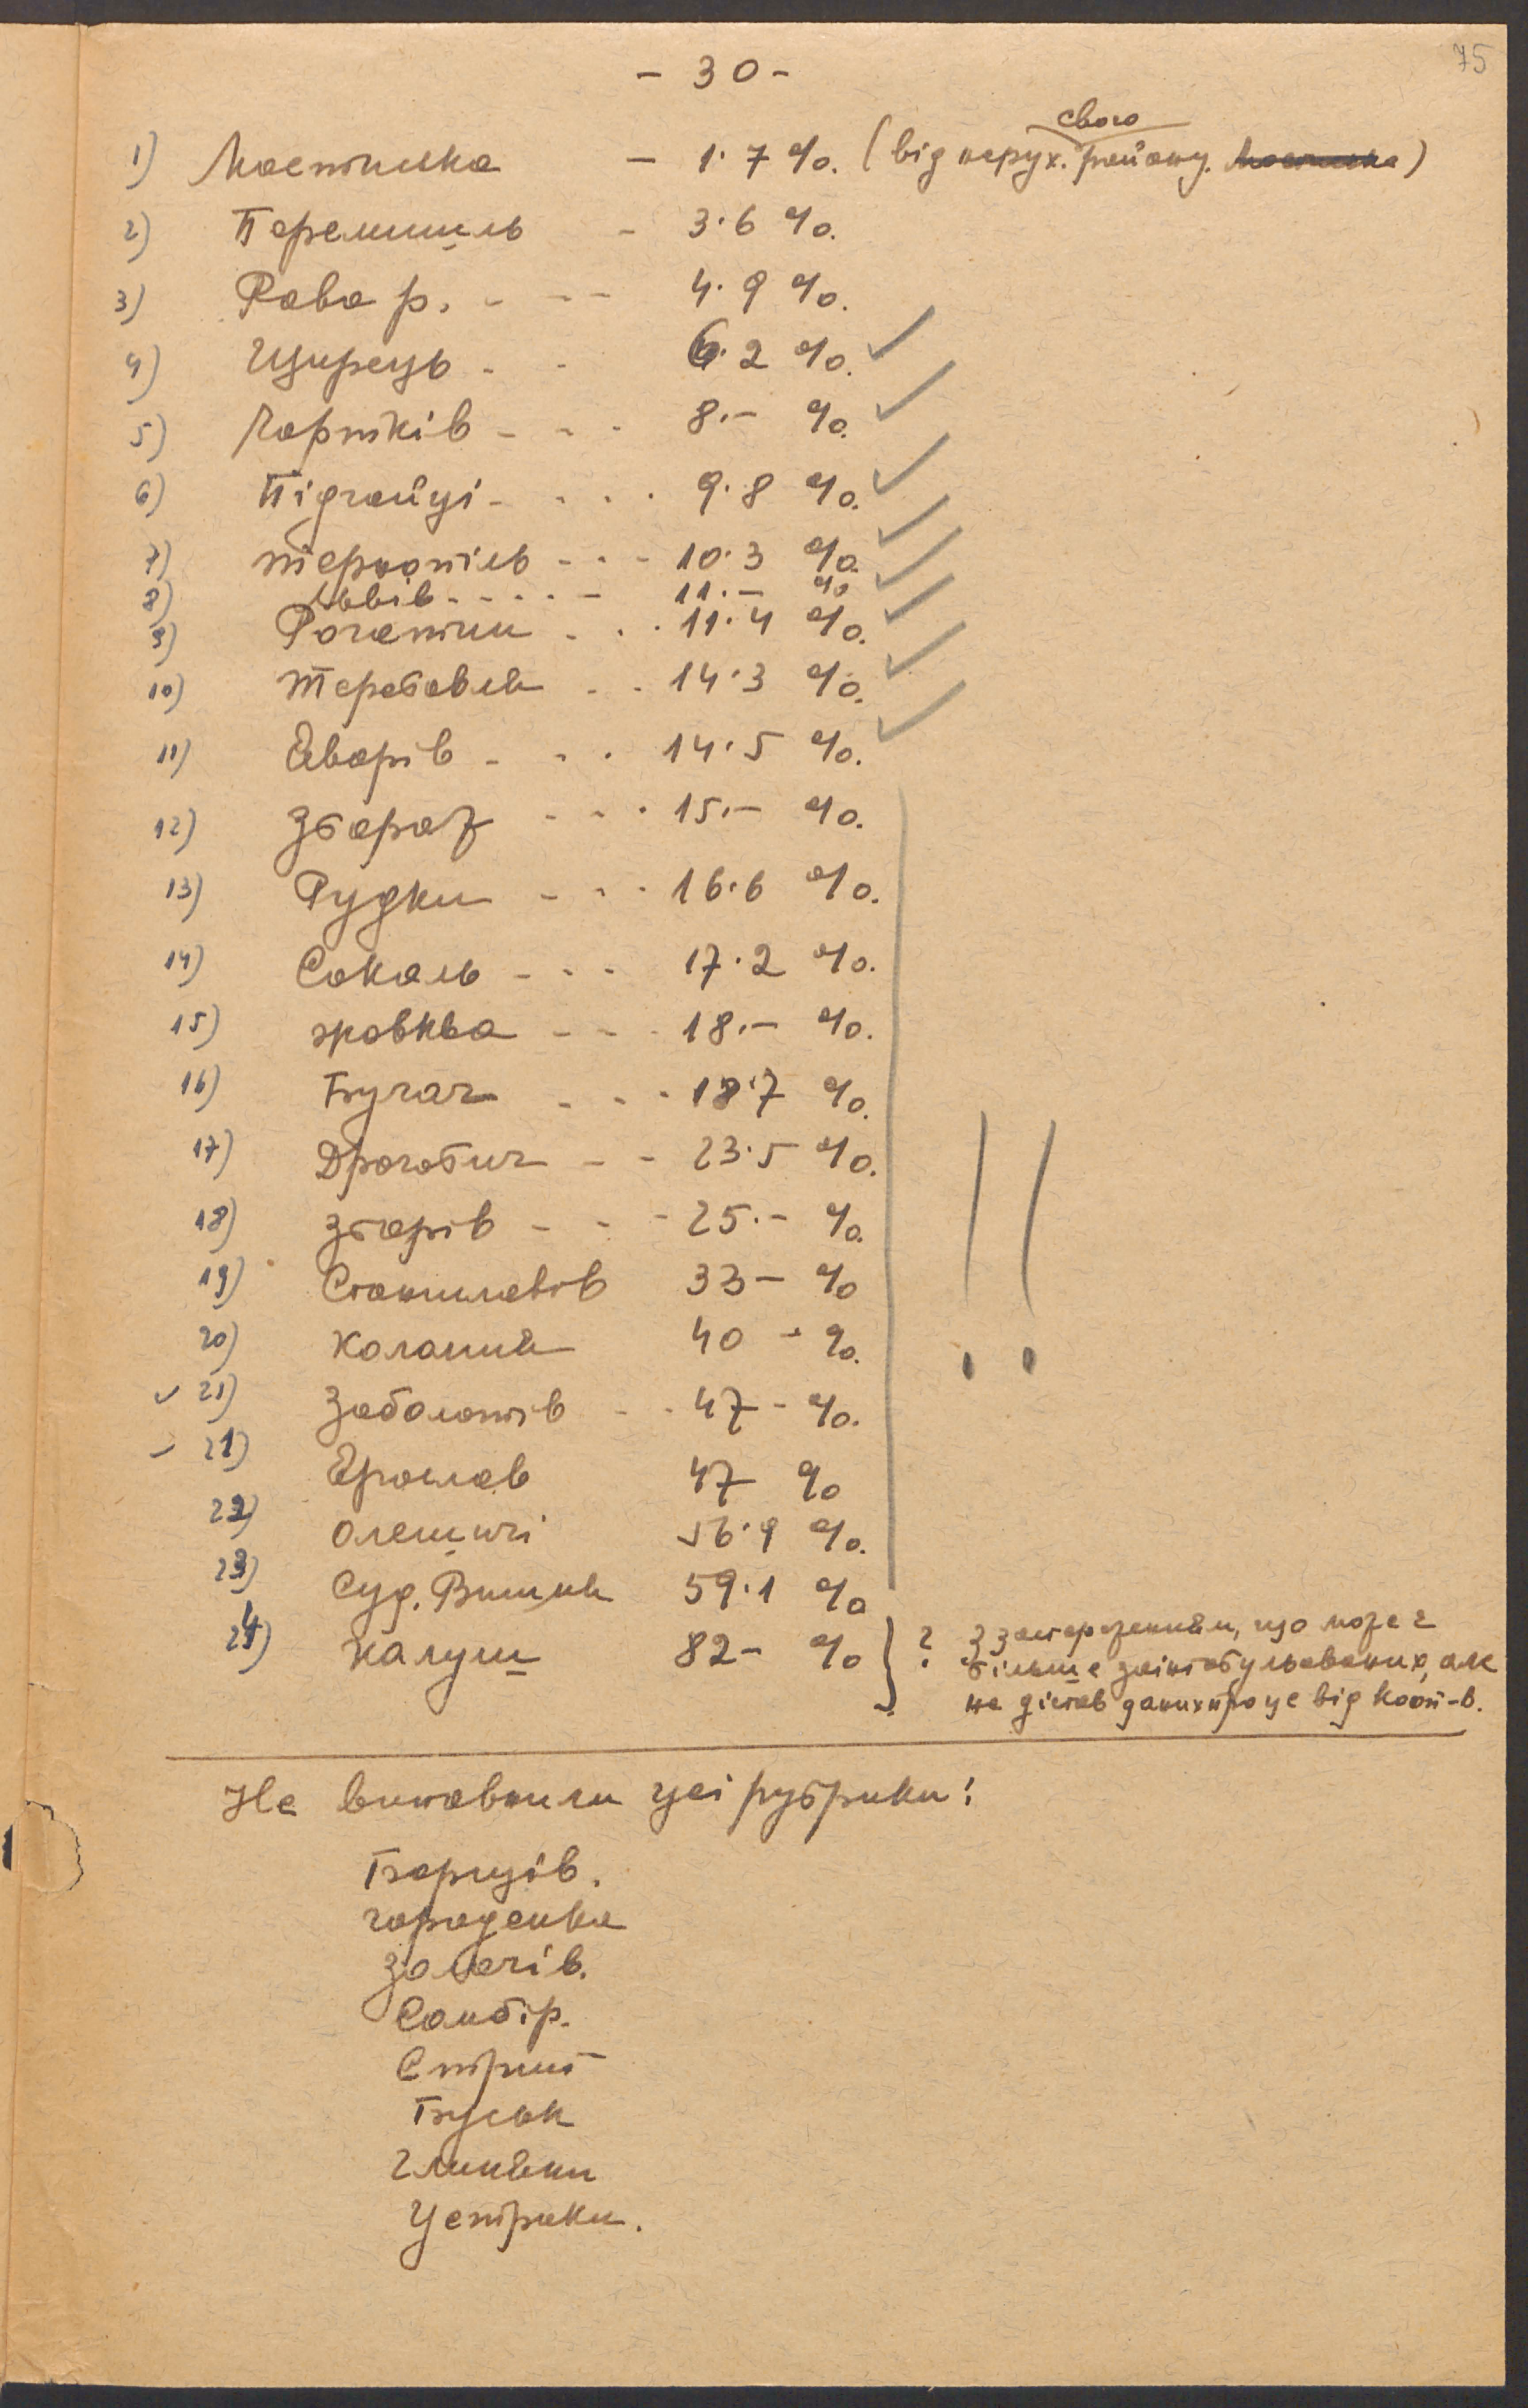 75
- 30 -
свого
1) Мостиська - 1.7 %. (від нерух. району. Мостиська)
2) Перемишль - 3.6 %.
3) Рава р. - - - 4.9 %.
4) Щирець - - 6.2 %.
5) Чортків - - - 8.- %.
6) Підгайці - - - - 9.8 %.
7) Тернопіль - - - 10.3 %.
8) Львів - - - - - 11.- %
9) Рогатин - - - 11.4 %.
10) Теребовля - - 14.3 %.
11) Яворів - - - 14.5 %.
12) Збараж - - - 15.- %.
13) Рудки - - - 16.6 %.
14) Сокаль - - - 17.2 %.
15) Жовква - - - 18.- %.
16) Бучач - - - 18.7 %.
17) Дрогобич - - 23.5 %.
18) Зборів - - - 25.- %.
19) Станиславів 33- %
20) Коломия 40 - %.
21) Заболотів - - 47 - %.
21) Ярослав 47 %
22) Олешичі 56.9 %.
23) Суд. Вишня 59.1 %
24) Калуш 82- % } ? З застереженням, що може є
більше заінтабульованих, але
не дістав даних про це від кооп-в.
Не виповнили цеї рубрики:
Борщів.
Городенка
Золочів.
Самбір.
Стрий
Буськ
Глиняни
Устрики.